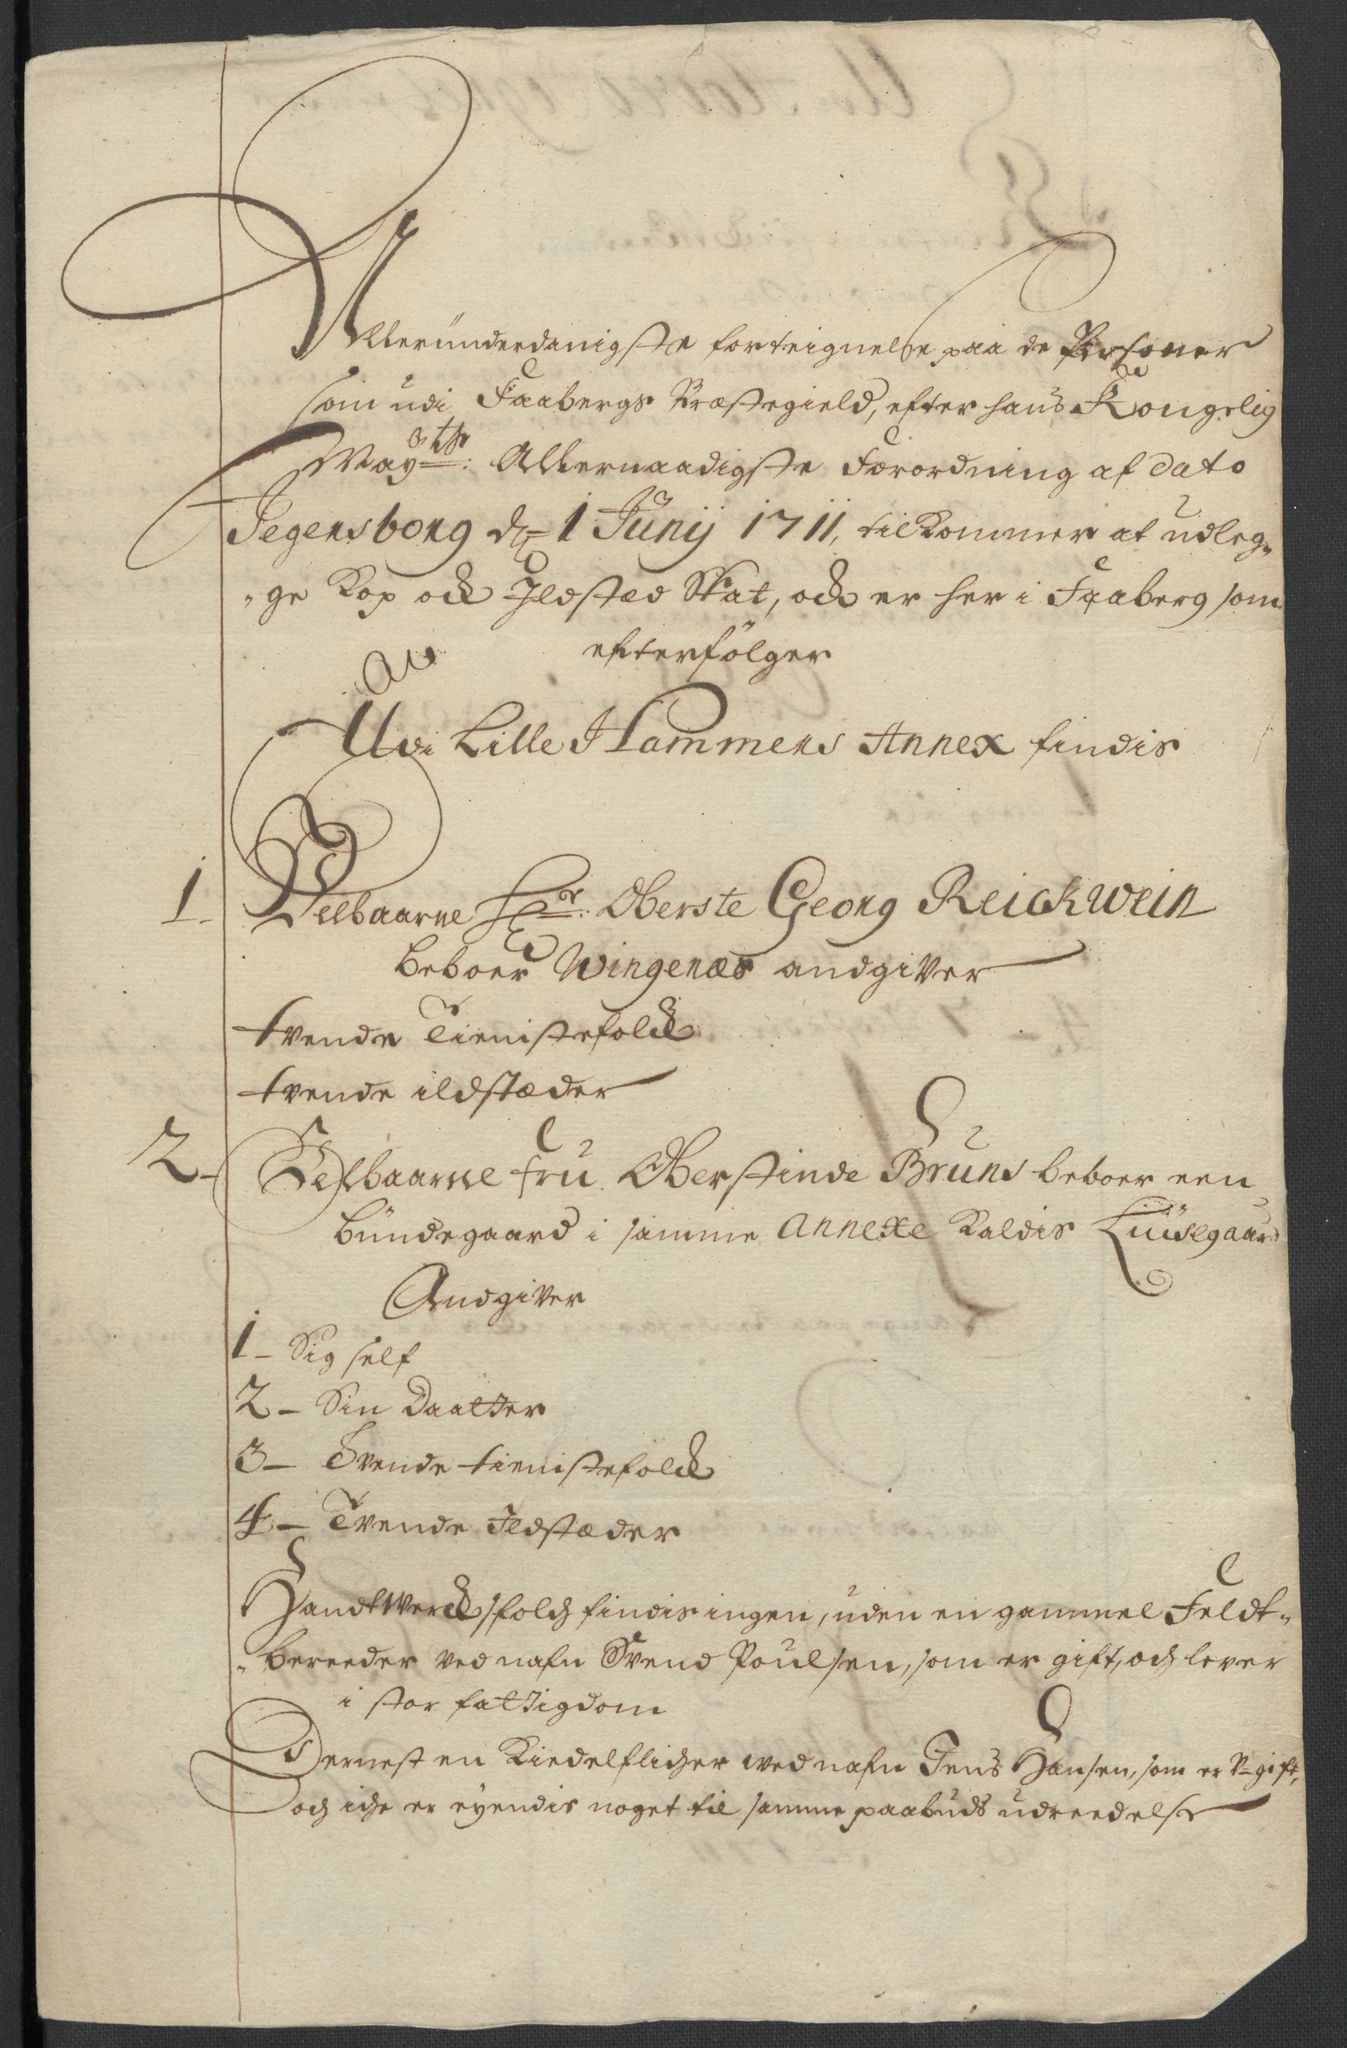 Allerunderdanigste forteignelse paa de Personer
som udi Faabergs Præstegield, efter hans Kongelig
Mayts: Allernaadigste Forordning af dato
Jegersborg d. 1 Junij 1711, tilkommer at udleg-
-ge Kop och Ildsted Skat, och er her i Faaberg som
efterfölger
Udi Lille Hammers Annex findis
1- Velbaarne Hr: Oberste Georg Reichwein
beboer Wingenæs andgiver
tvende Tienistefolch
tvende ildstæder
2- Velbaarne fru Oberstinde Bruns beboer een
bundegaard i samme Annexe kaldis Luusegaard
Andgiver
1- Sig self
2- Sin Daatter
3- Tvende tienistefolch
4- Tvende Ildstæder
Handtwerchsfolch findis ingen, uden en gammel Feldt-
-bereeder ved nafn Svend Poulsen, som er gift, och lever
i stor fattigdom
Dernest en Kiedelflicher wed nafn Jens Hansen, som er V-gift,
och iche er eyendis noget til samme paabuds udreedelse